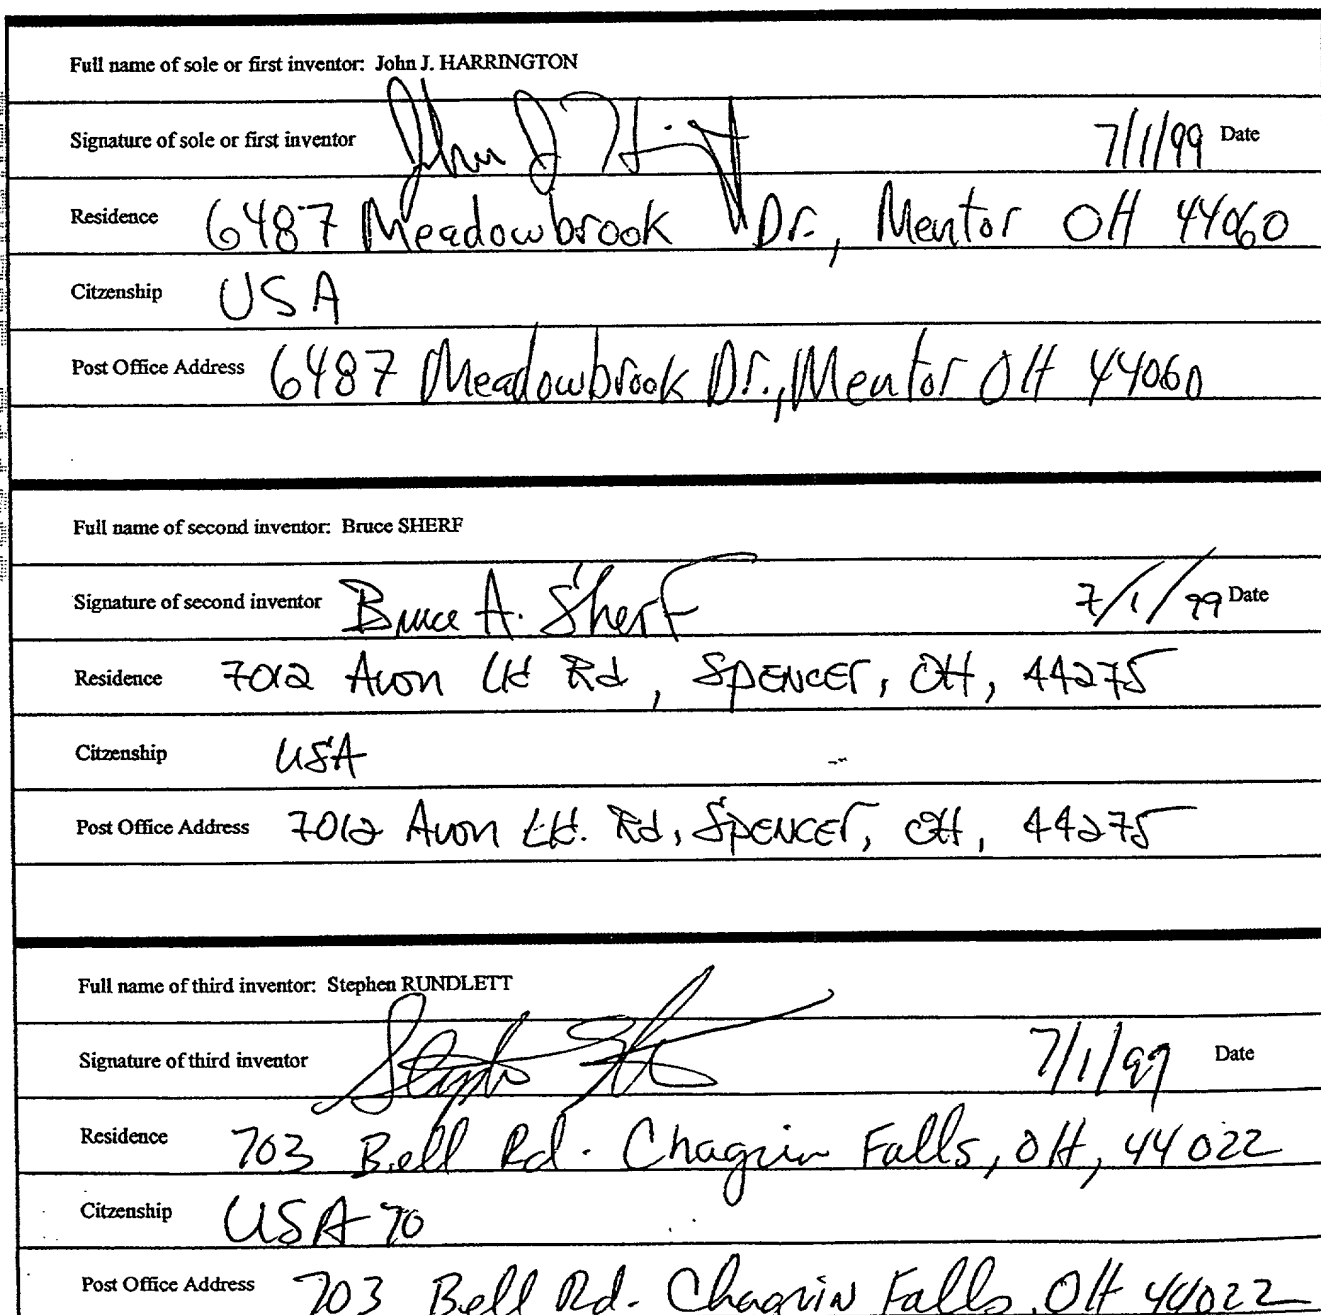 Full name of sole or first inventor: John J. HARRINGTON
Signature of sole or first inventor John J 7/1/99 Date
Residence 6487 Meadowbrook Dr., Mentor OH 44060
Citzenship USA
Post Office Address 6487 Meadowbrook Dr., Mentor OH 44060
Full name of second inventor: Bruce SHERF
Signature of second inventor Bruce A. Sherf 7/1/99 Date
Residence 7012 Avon Rd, SPENCER, OH, 44275
Citzenship USA
Post Office Address 7012 Avon Rd, SPENCER, OH, 44275
Full name of third inventor: Stephen RUNDLETT
Signature of third inventor 7/1/99 Date
Residence 703 Bell Rd. Chagrin Falls, OH, 44022
Citzenship USA 70
Post Office Address 703 Bell Rd. Chagrin Falls, OH 44022